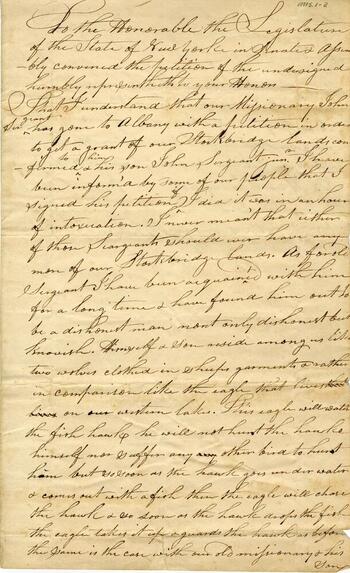 To the Honorable the Legislation
of the State of New Yorke in Senate & Assem
-bly convened the petition of the undesigned
humbly representeth to your Honors
That I understand that our Missionary John
Sir grant
has gone to Albany with a petition in order
to get a grant of our Stockbridge lands con
to him
-firmed & his son John Sargeant Junr. I have
been informed by some of our people that I
signed his petition if I did it was in an hour
of intoxication. I never meant that either
of those Sargeants should ever have any
more of our Stockbridge lands. As for old
Sergeant I have been acquainted with him
for a long time & have found him out to
be a dishonest man not only dishonest but
knavish. Himself & son reside among us like
two wolves clothed in sheeps garments & rather
in comparison like the eagle that lives
on our western lakes. This eagle will watch
the fish hawk he will not hunt the hawks
himself nor suffer any other bird to hunt
him but so soon as the hawk goes under water
& comes out with a fish then the eagle will chase
the hawk & so soon as the hawk drops the fish
the eagle takes it up & guards the hawk as before
the same is the case with our old missionary & his
son